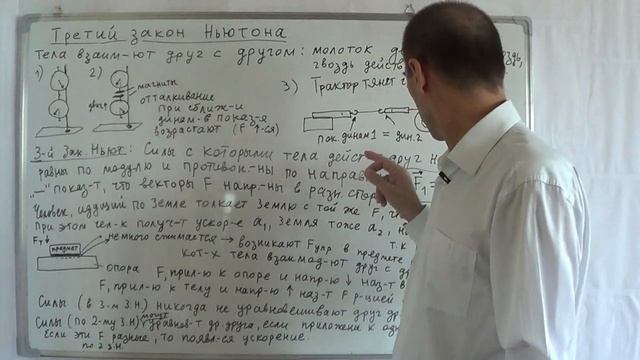 Третий закон Ньютона
Тела взаим-ют друг с другом: молоток
гвоздь действ
1) 2) магниты
3) Трактор тянет
отталкивание
при сближ-и
динам-в показ-я
возрастают (F ↑-ся)
пок. динам 1 = дин. 2
3-й Зак. Ньют: Силы с которыми тела дейст друг
равны по модулю и противоп.-ны по направ
"—" показ-т, что векторы F напр-ны в разн. стор
F₁ =
Человек, идущий по Земле толкает Землю с той же F,
При этом чел-к получ-т ускор-е a₁, Земля тоже a₂,
F т ↓ предмет немного сжимается → возникают F упр в предмете
т.к
кот-х тела взаимод-ют друг с
опора F, прил-ю к опоре и напр-ю ↓ наз-т
F, прил-ю к телу и напр-ю ↑ наз-т F р-цией
Силы (в 3-м З.Н.) никогда не уравновешивают друг
Силы (по 2-му З.Н.) могут уравнов-т др. друга, если приложены к
Если эти F разные, то появл-ся ускорение.
по 2 З.Н.